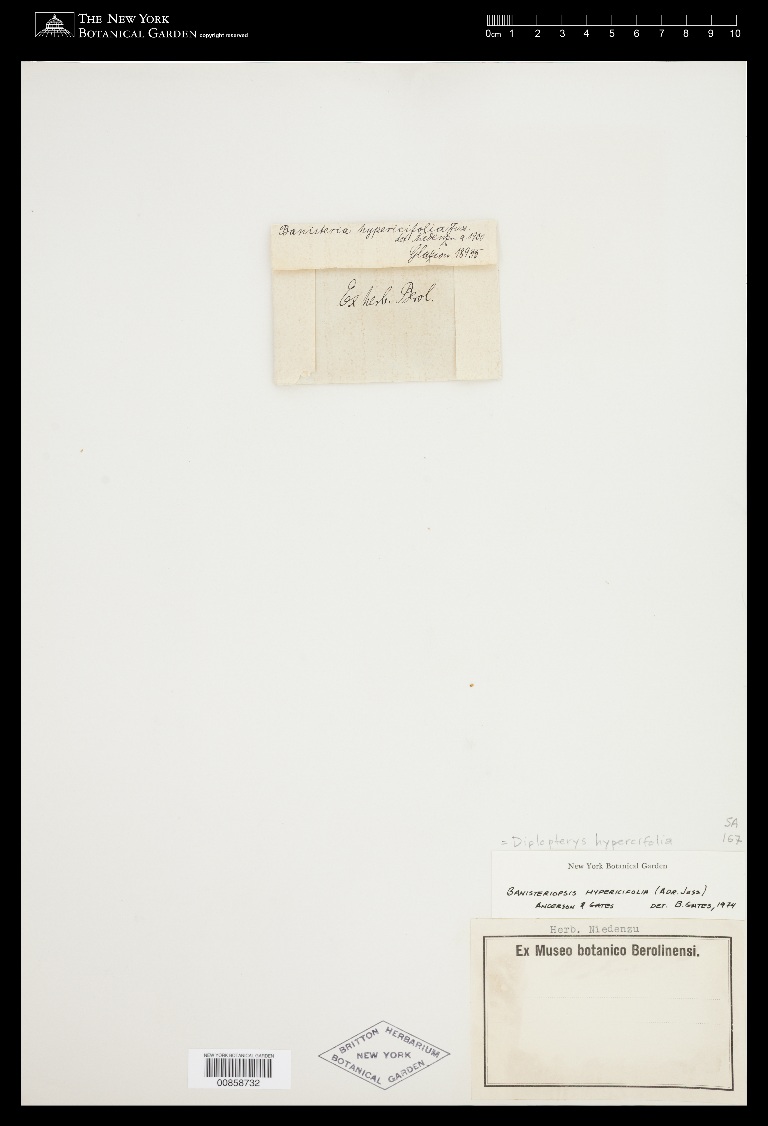 THE NEW YORK
BOTANICAL GARDEN copyright reserved
0cm 1 2 3 4 5 6 7 8 9 10
Banisteria hypericifolia Juss.
det. Niedenzu a. 1901
Glaziou 18955
Ex herb. Berol.
SA
167
= Diplopterys hypercifolia
New York Botanical Garden
BANISTERIOPSIS HYPERICIFOLIA (ADR. JUSS)
ANDERSON & GATES DET. B. GATES, 1974
Herb. Niedenzu
Ex Museo botanico Berolinensi.
BRITTON HERBARIUM
NEW YORK
BOTANICAL GARDEN
NEW YORK BOTANICAL GARDEN
00858732